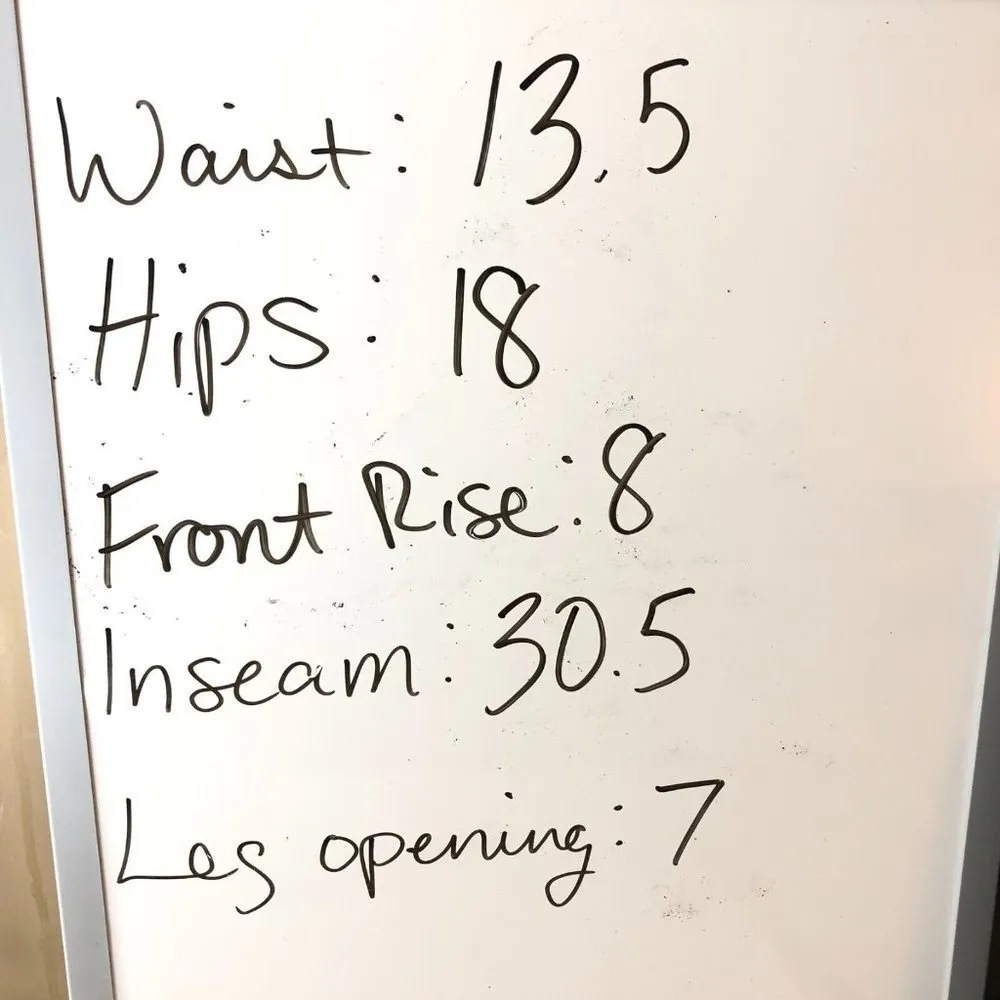 Waist: 13.5
Hips: 18
Front Rise: 8
Inseam: 30.5
Leg opening: 7